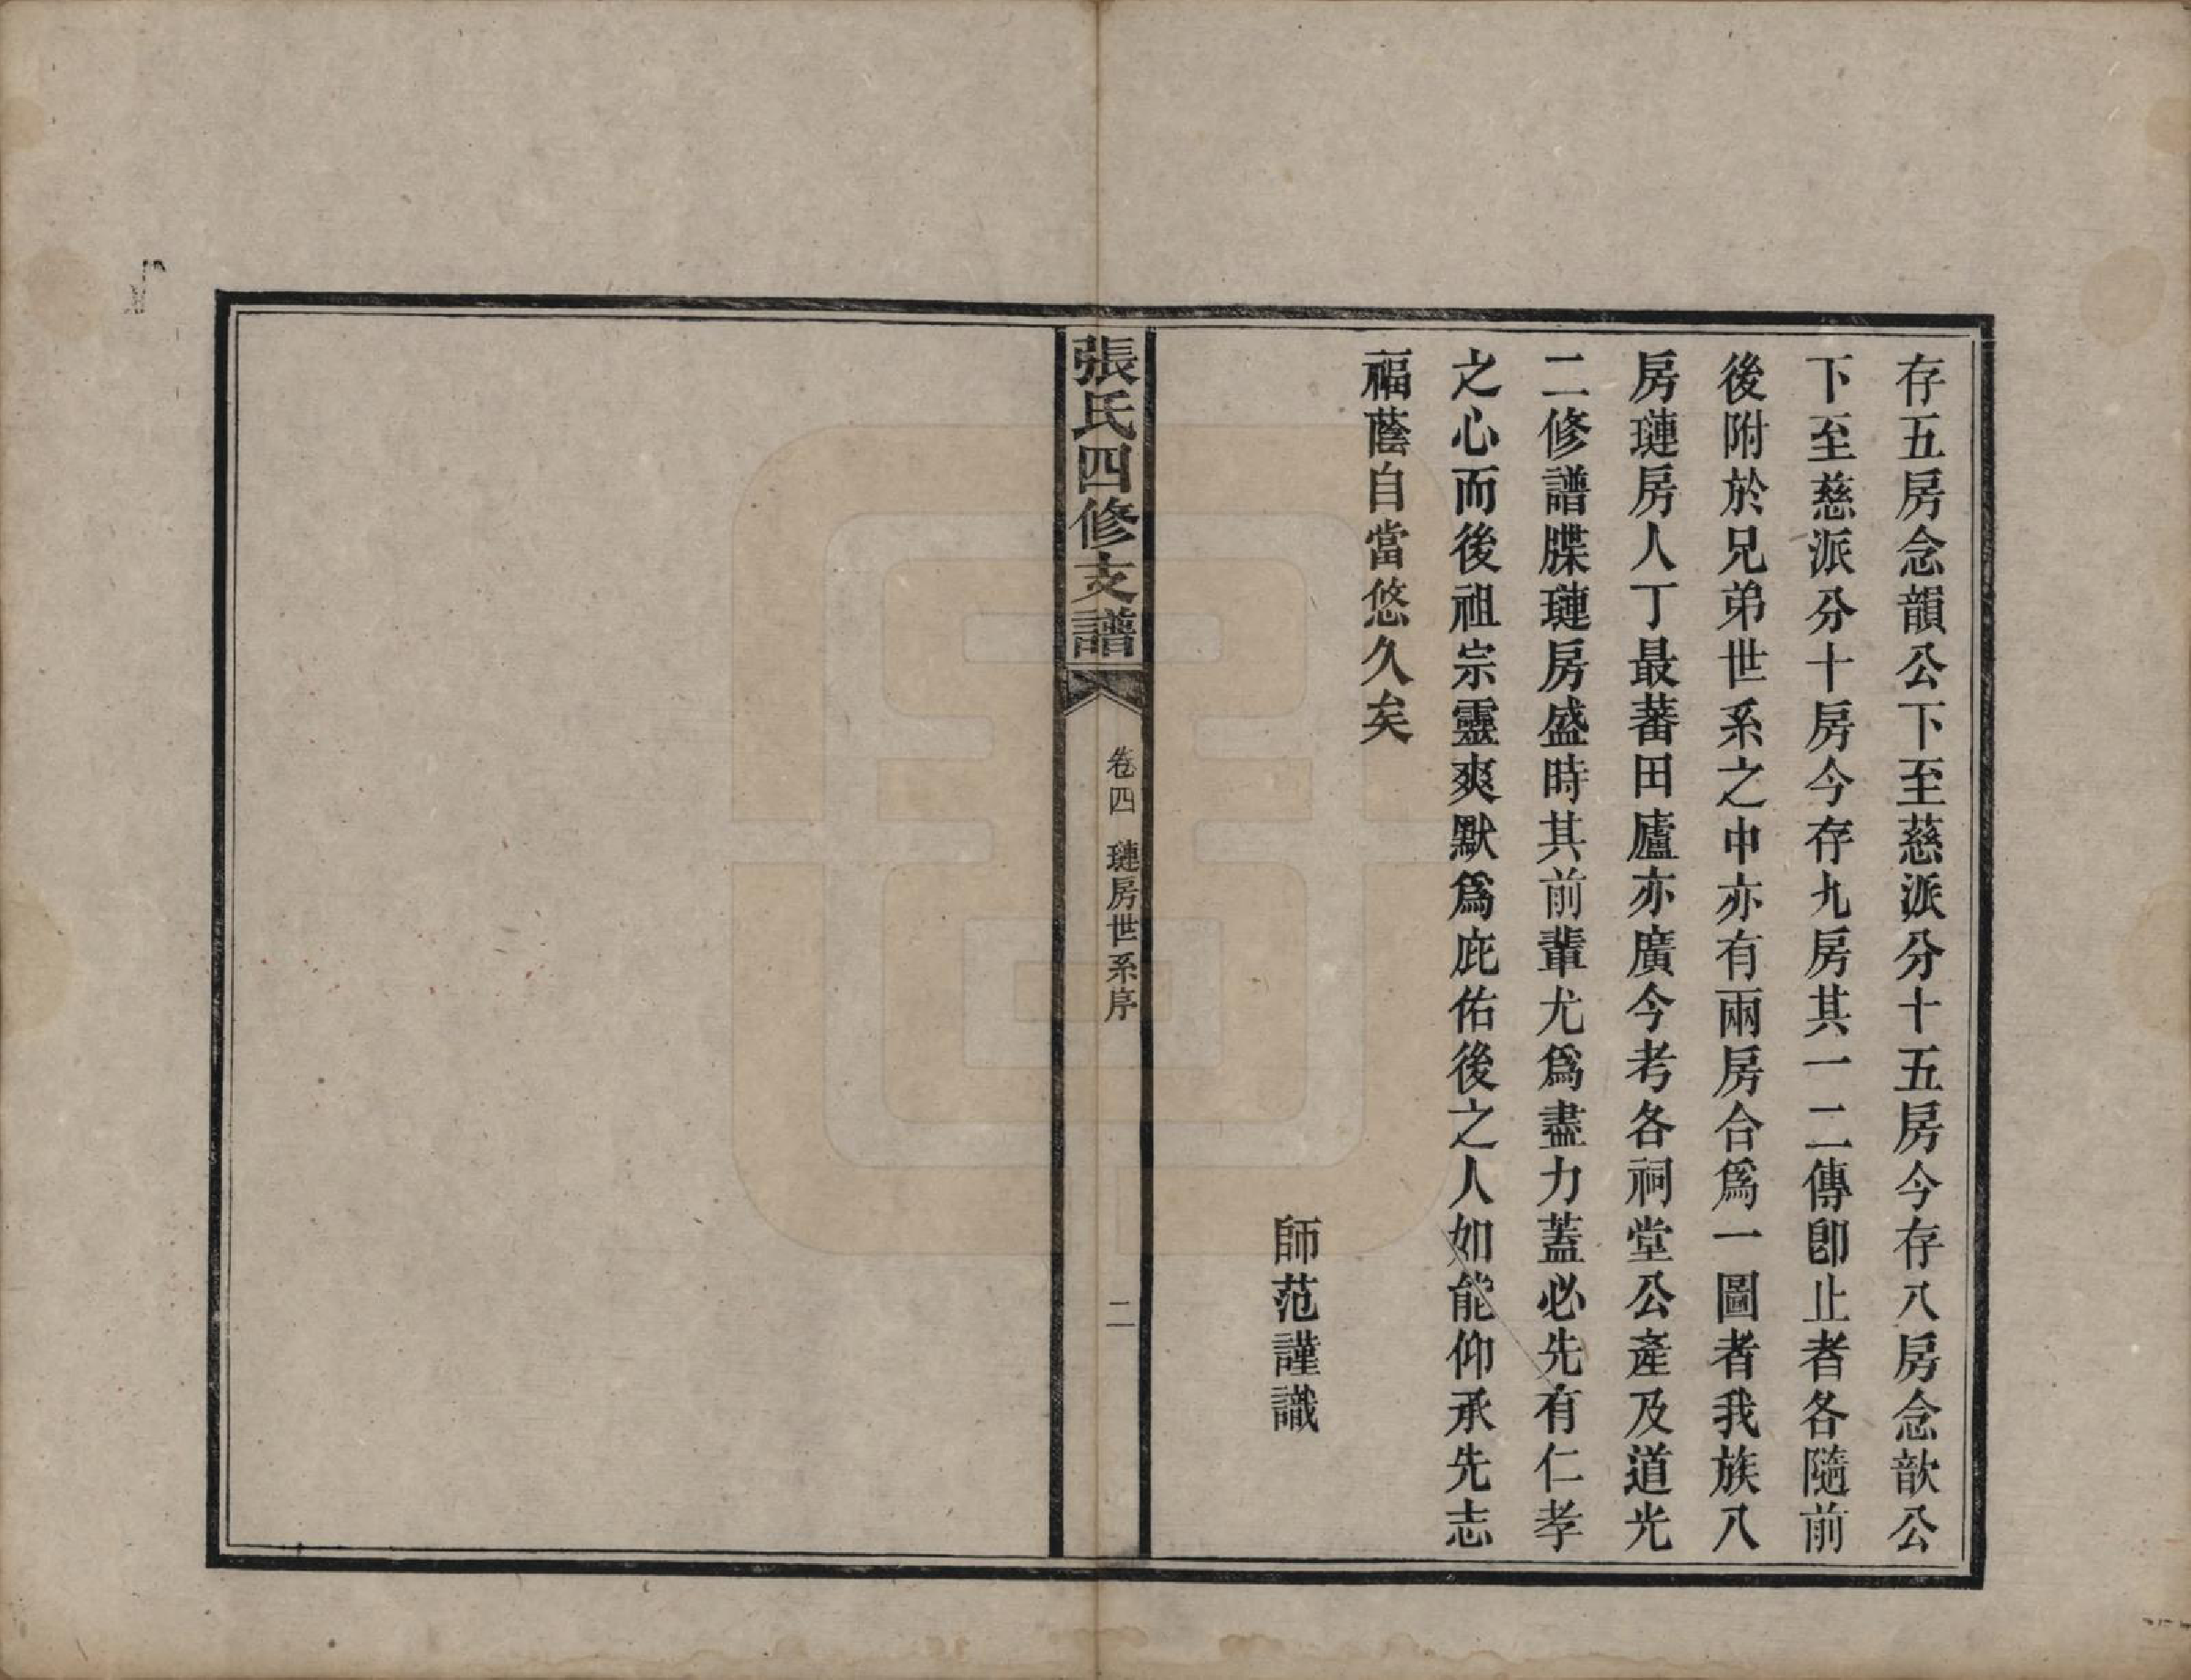 存五房念韻公下至慈派分十五房今存八房念歆公
下至慈派分十房今存九房其一二傳卽止者各隨前
後附於兄弟世系之中亦有兩房合爲一圖者我族八
房璉房人丁最蕃田廬亦廣今考各祠堂公產及道光
二修譜牒璉房盛時其前輩尤爲盡力蓋必先有仁孝
之心而後祖宗靈爽默爲庇佑後之人如能仰承先志
福蔭自當悠久矣
師范謹識
張氏四修支譜
卷四 璉房世系序
二